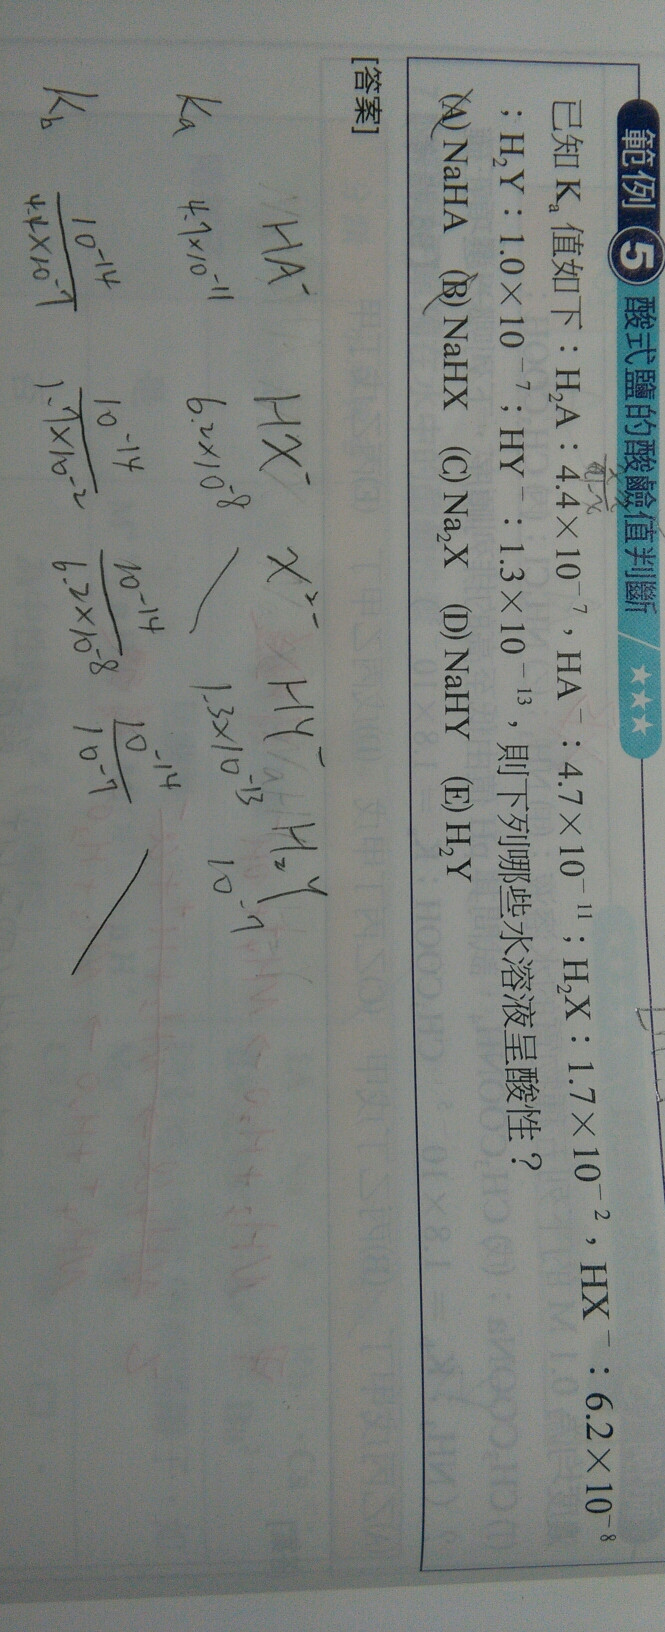 範例 5 酸式鹽的酸鹼值判斷 / ★★★
已知 Kₐ 值如下：H₂A：4.4×10⁻⁷，HA⁻：4.7×10⁻¹¹；H₂X：1.7×10⁻²，HX⁻：6.2×10⁻⁸
；H₂Y：1.0×10⁻⁷；HY⁻：1.3×10⁻¹³，則下列哪些水溶液呈酸性？
(A) NaHA (B) NaHX (C) Na₂X (D) NaHY (E) H₂Y
[答案]
HA⁻ HX⁻ X²⁻ HY⁻ H₂Y
Ka 4.7×10⁻¹¹ 6.2×10⁻⁸ 1.3×10⁻¹³ 10⁻⁷
10⁻¹⁴ 10⁻¹⁴ 10⁻¹⁴ 10⁻¹⁴
Kb 4.4×10⁻⁷ 1.7×10⁻² 6.2×10⁻⁸ 10⁻⁷